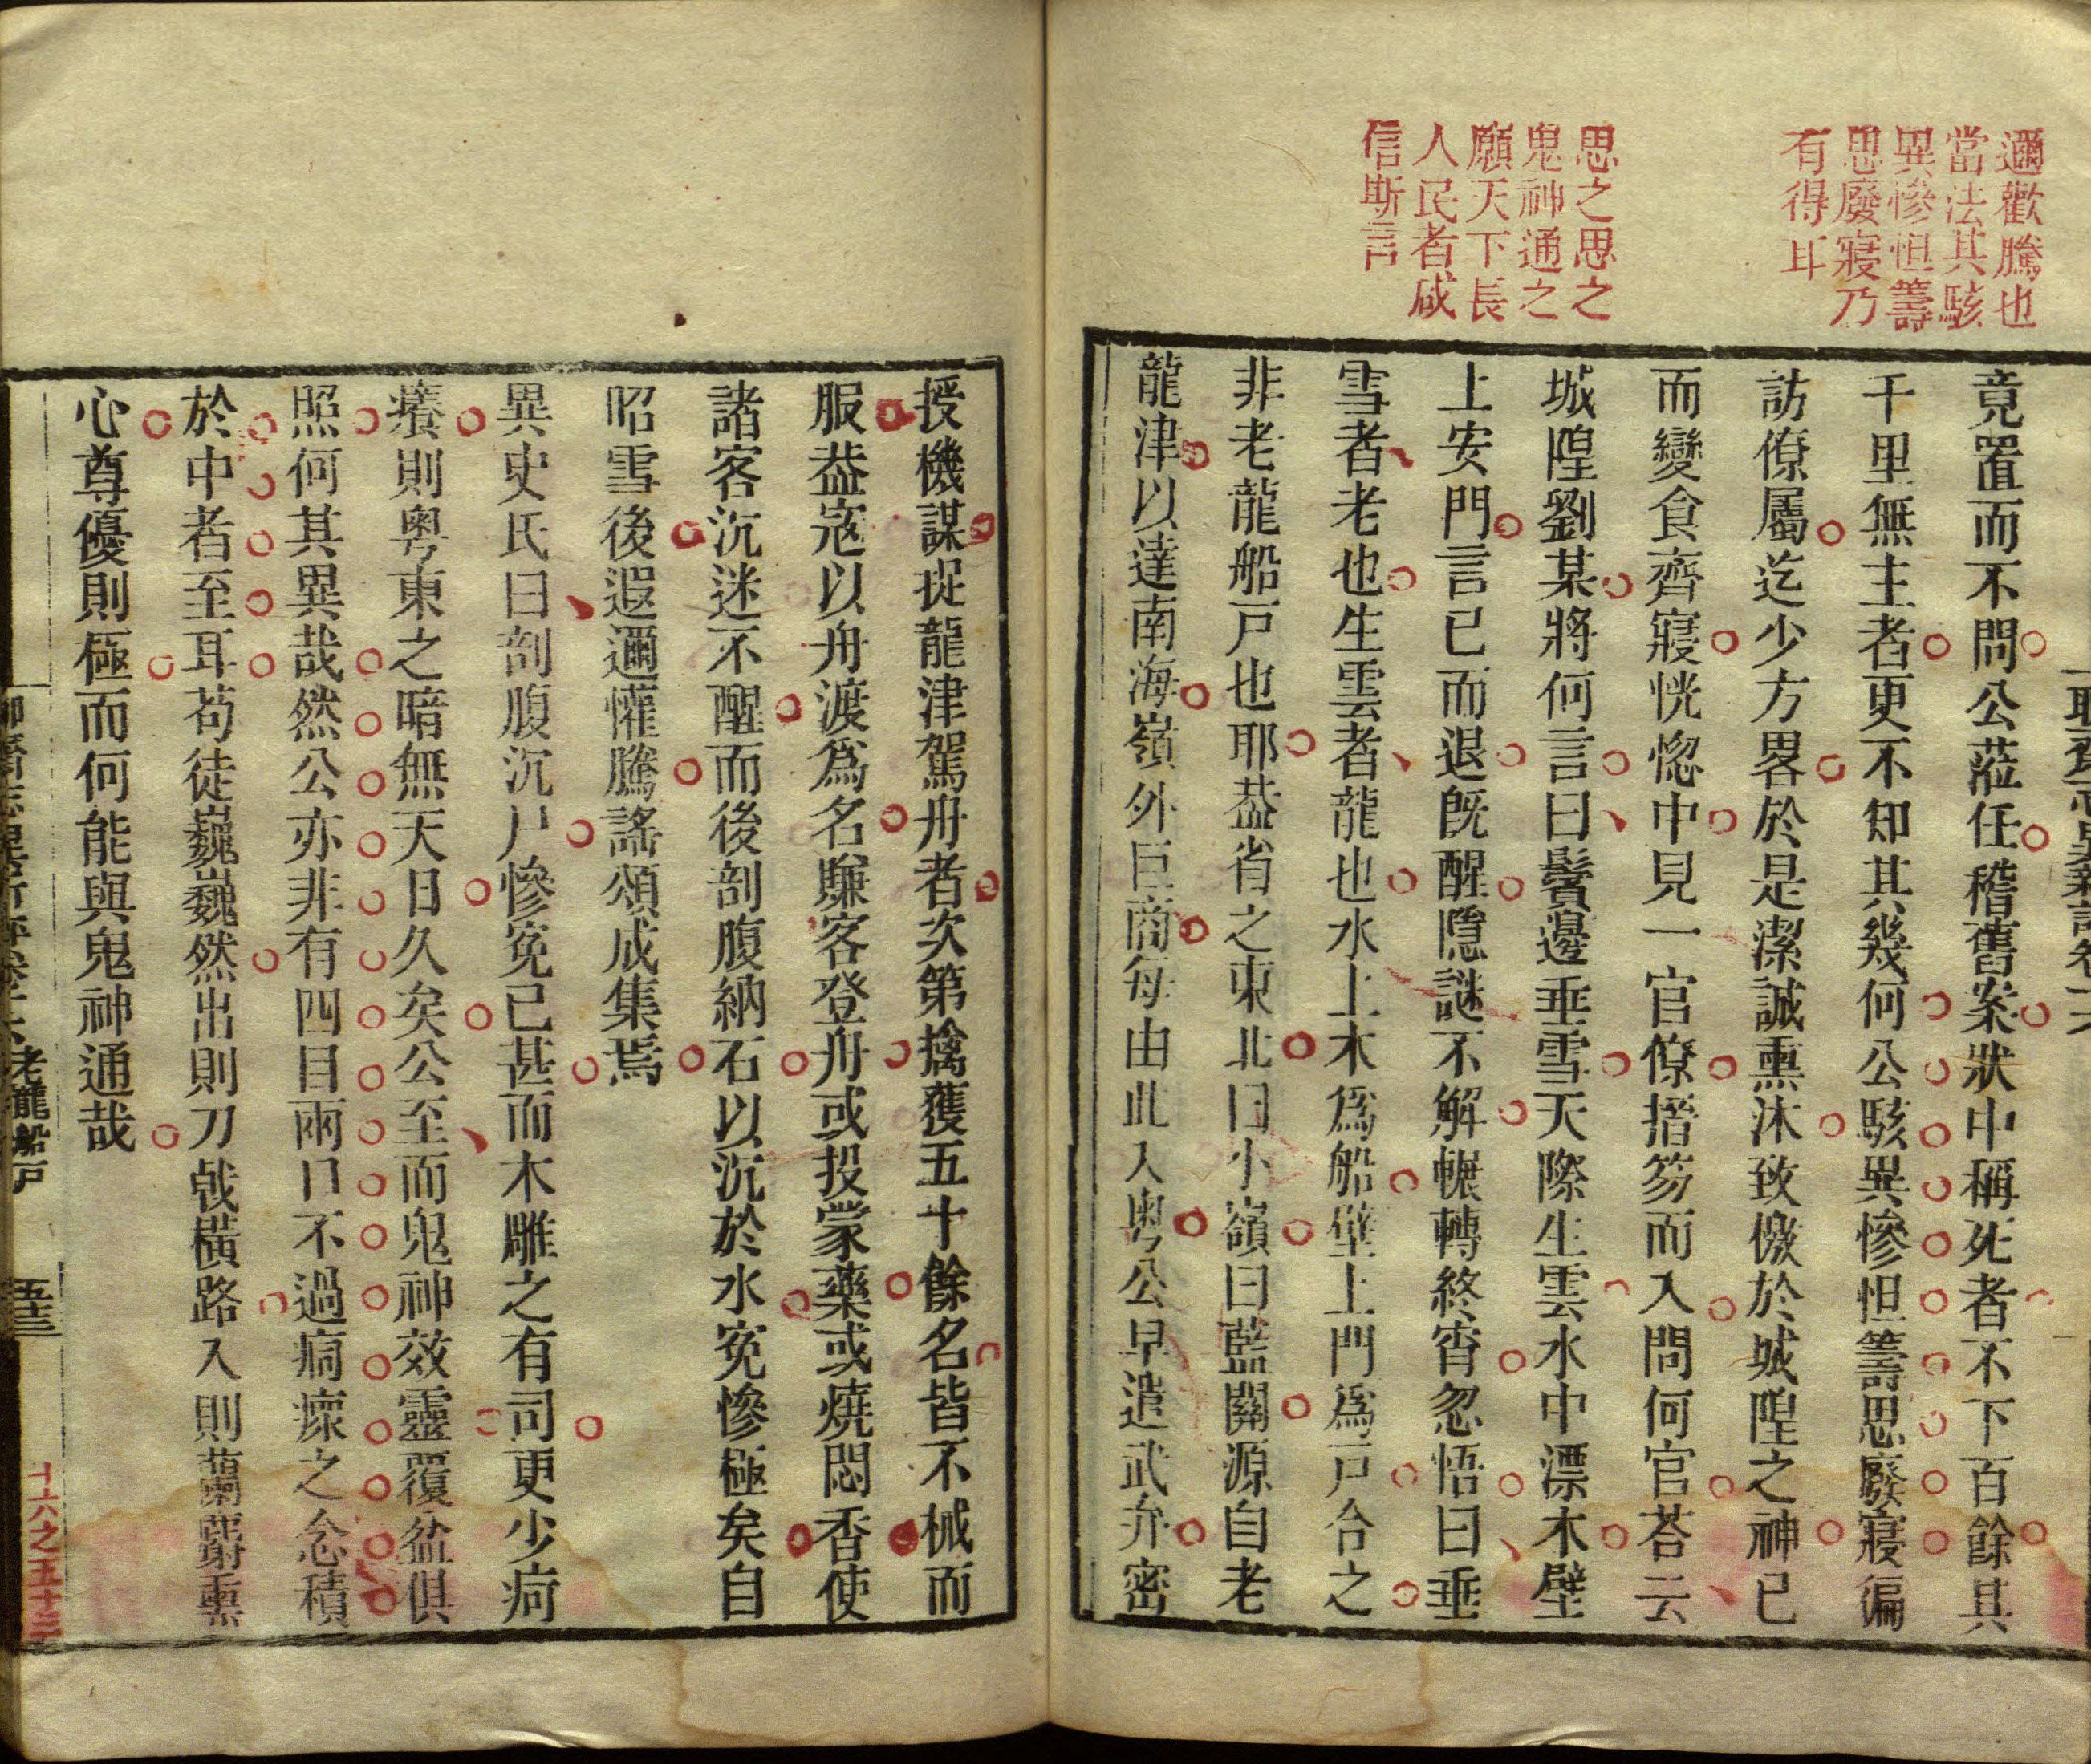 邇歡騰也
當法其駭
異慘怛籌
思廢寢乃
有得耳
思之思之
鬼神通之
願天下長
人民者咸
信斯言
竟置而不問公蒞任稽舊案狀中稱死者不下百餘其
千里無主者更不知其幾何公駭異慘怛籌思廢寢徧
訪僚屬迄少方畧於是潔誠熏沐致檄於城隍之神已
而變食齊寢恍惚中見一官僚搢笏而入問何官荅云
城隍劉某將何言曰鬢邊垂雪天際生雲水中漂木壁
上安門言已而退旣醒隱謎不解輾轉終宵忽悟曰垂
雪者老也生雲者龍也水上木爲船壁上門爲戸合之
非老龍船戸也耶葢省之東北曰小嶺曰藍關源自老
龍津以達南海嶺外巨商每由此入粤公早遣武弁密
授機謀捉龍津駕舟者次第擒獲五十餘名皆不械而
服葢寇以舟渡爲名賺客登舟或投蒙藥或燒悶香使
諸客沉迷不醒而後剖腹納石以沉於水寃慘極矣自
昭雪後遐邇懽騰謠頌成集焉
異史氏曰剖腹沉尸慘寃已甚而木雕之有司更少疴
癢則粤東之暗無天日久矣公至而鬼神效靈覆盆俱
照何其異哉然公亦非有四目兩口不過痌瘝之念積
於中者至耳苟徒巍巍然出則刀戟橫路入則蘭麝熏
心尊優則極而何能與鬼神通哉
老龍船戸
五十三
十六之五十三